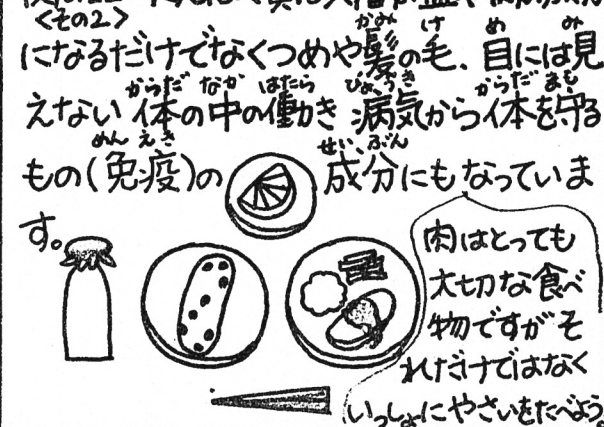 <その2>
になるだけでなくつめや髪の毛、目には見
えない体の中の働き病気から体を守る
もの(免疫)の成分にもなっていま
す。
肉はとっても
大切な食べ
物ですがそ
れだけではなく
いっしょにやさいをたべよう。